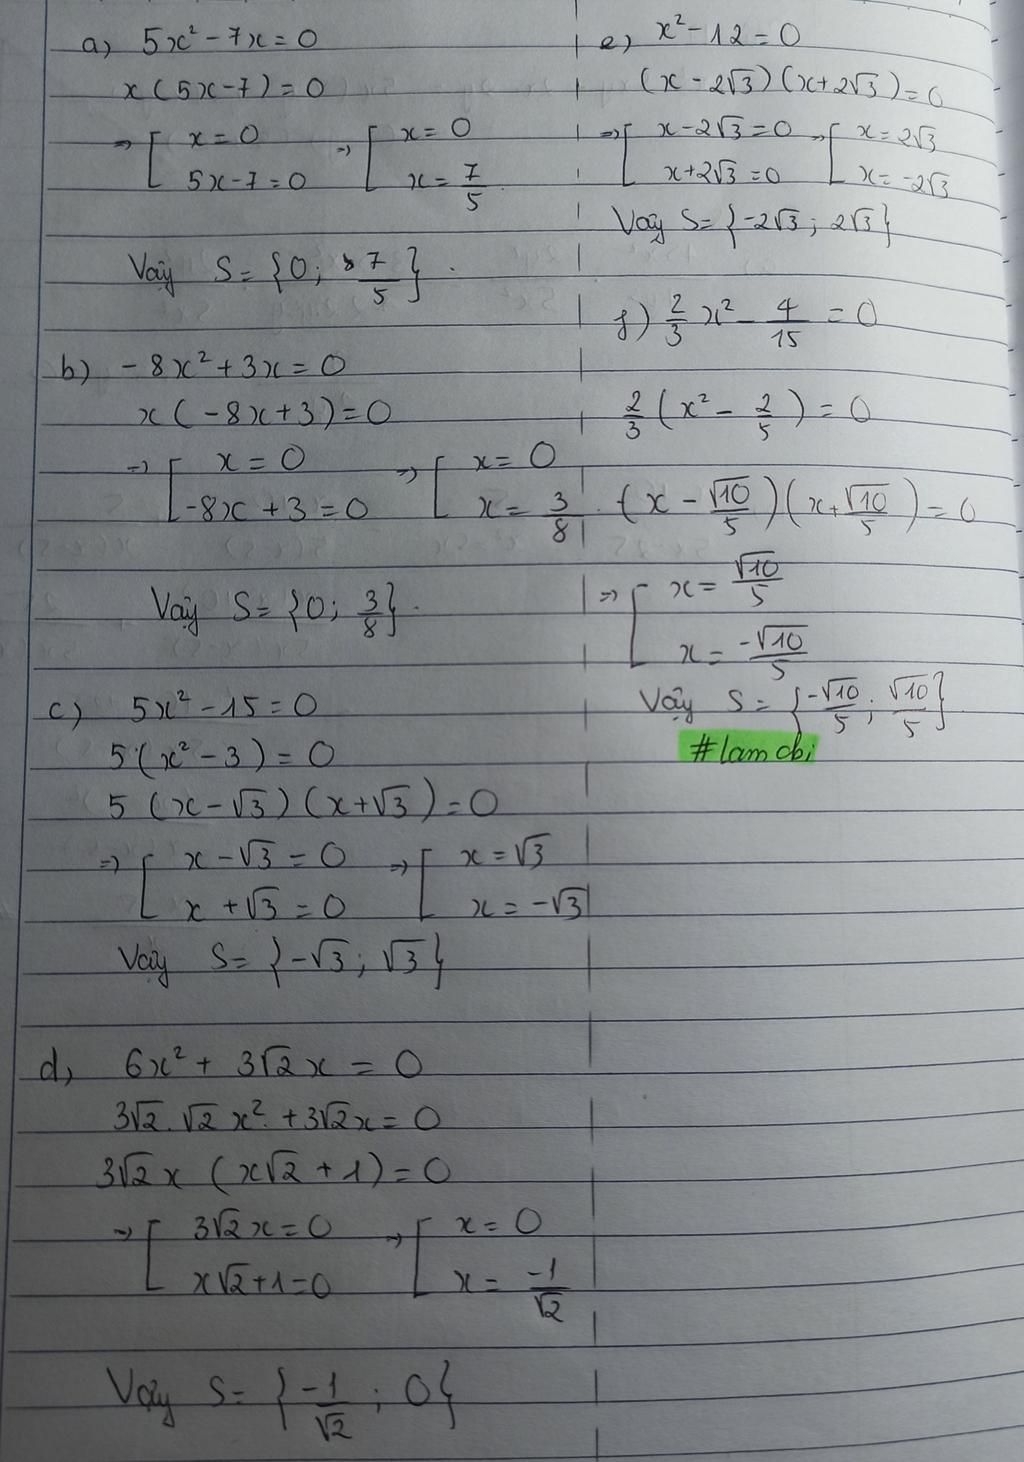 a) 5x² - 7x = 0
x(5x-7) = 0
⇒ [ x = 0 ⇒ [ x = 0
5x-7 = 0 x = 7/5
Vậy S = {0; 7/5}.
b) -8x² + 3x = 0
x(-8x+3) = 0
⇒ [ x = 0 ⇒ [ x = 0
-8x + 3 = 0 x = 3/8.
Vậy S = {0; 3/8}.
c) 5x² - 15 = 0
5(x² - 3) = 0
5(x-√3)(x+√3) = 0
⇒ [ x - √3 = 0 ⇒ [ x = √3
x + √3 = 0 x = -√3
Vậy S = {-√3; √3}
d) 6x² + 3√2x = 0
3√2.√2x² + 3√2x = 0
3√2x (x√2 + 1) = 0
⇒ [ 3√2x = 0 ⇒ [ x = 0
x√2 + 1 = 0 x = -1/√2
Vậy S = {-1/√2; 0}
e) x² - 12 = 0
(x - 2√3)(x + 2√3) = 0
⇒ [ x - 2√3 = 0 ⇒ [ x = 2√3
x + 2√3 = 0 x = -2√3
Vậy S = {-2√3; 2√3}
f) 2/3 x² - 4/15 = 0
2/3 (x² - 2/5) = 0
(x - √10/5)(x + √10/5) = 0
⇒ [ x = √10/5
x = -√10/5
Vậy S = {-√10/5; √10/5}
#lam chi